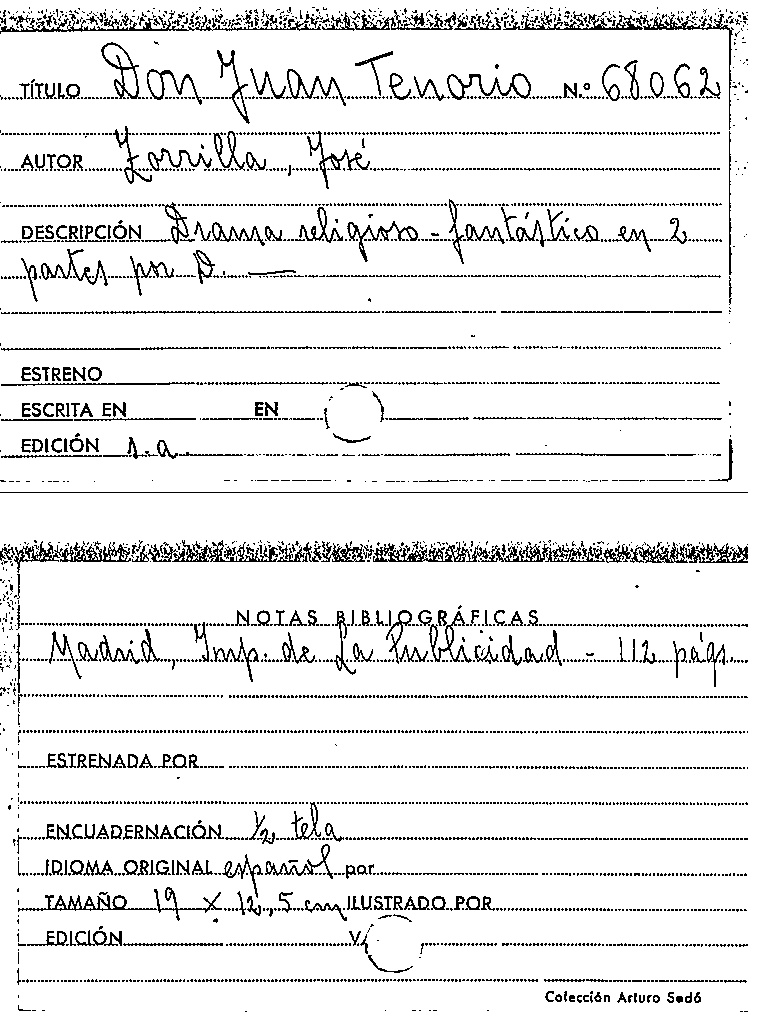 TÍTULO Don Juan Tenorio N.º 68062
AUTOR Zorrilla, José
DESCRIPCIÓN Drama religioso-fantástico en 2
partes por D. —
ESTRENO
ESCRITA EN EN
EDICIÓN s.a.
NOTAS BIBLIOGRÁFICAS
Madrid, Imp. de La Publicidad - 112 págs.
ESTRENADA POR
ENCUADERNACIÓN 1/2 tela
IDIOMA ORIGINAL español por
TAMAÑO 19 x 12,5 cm ILUSTRADO POR
EDICIÓN V.
Colección Arturo Sedó